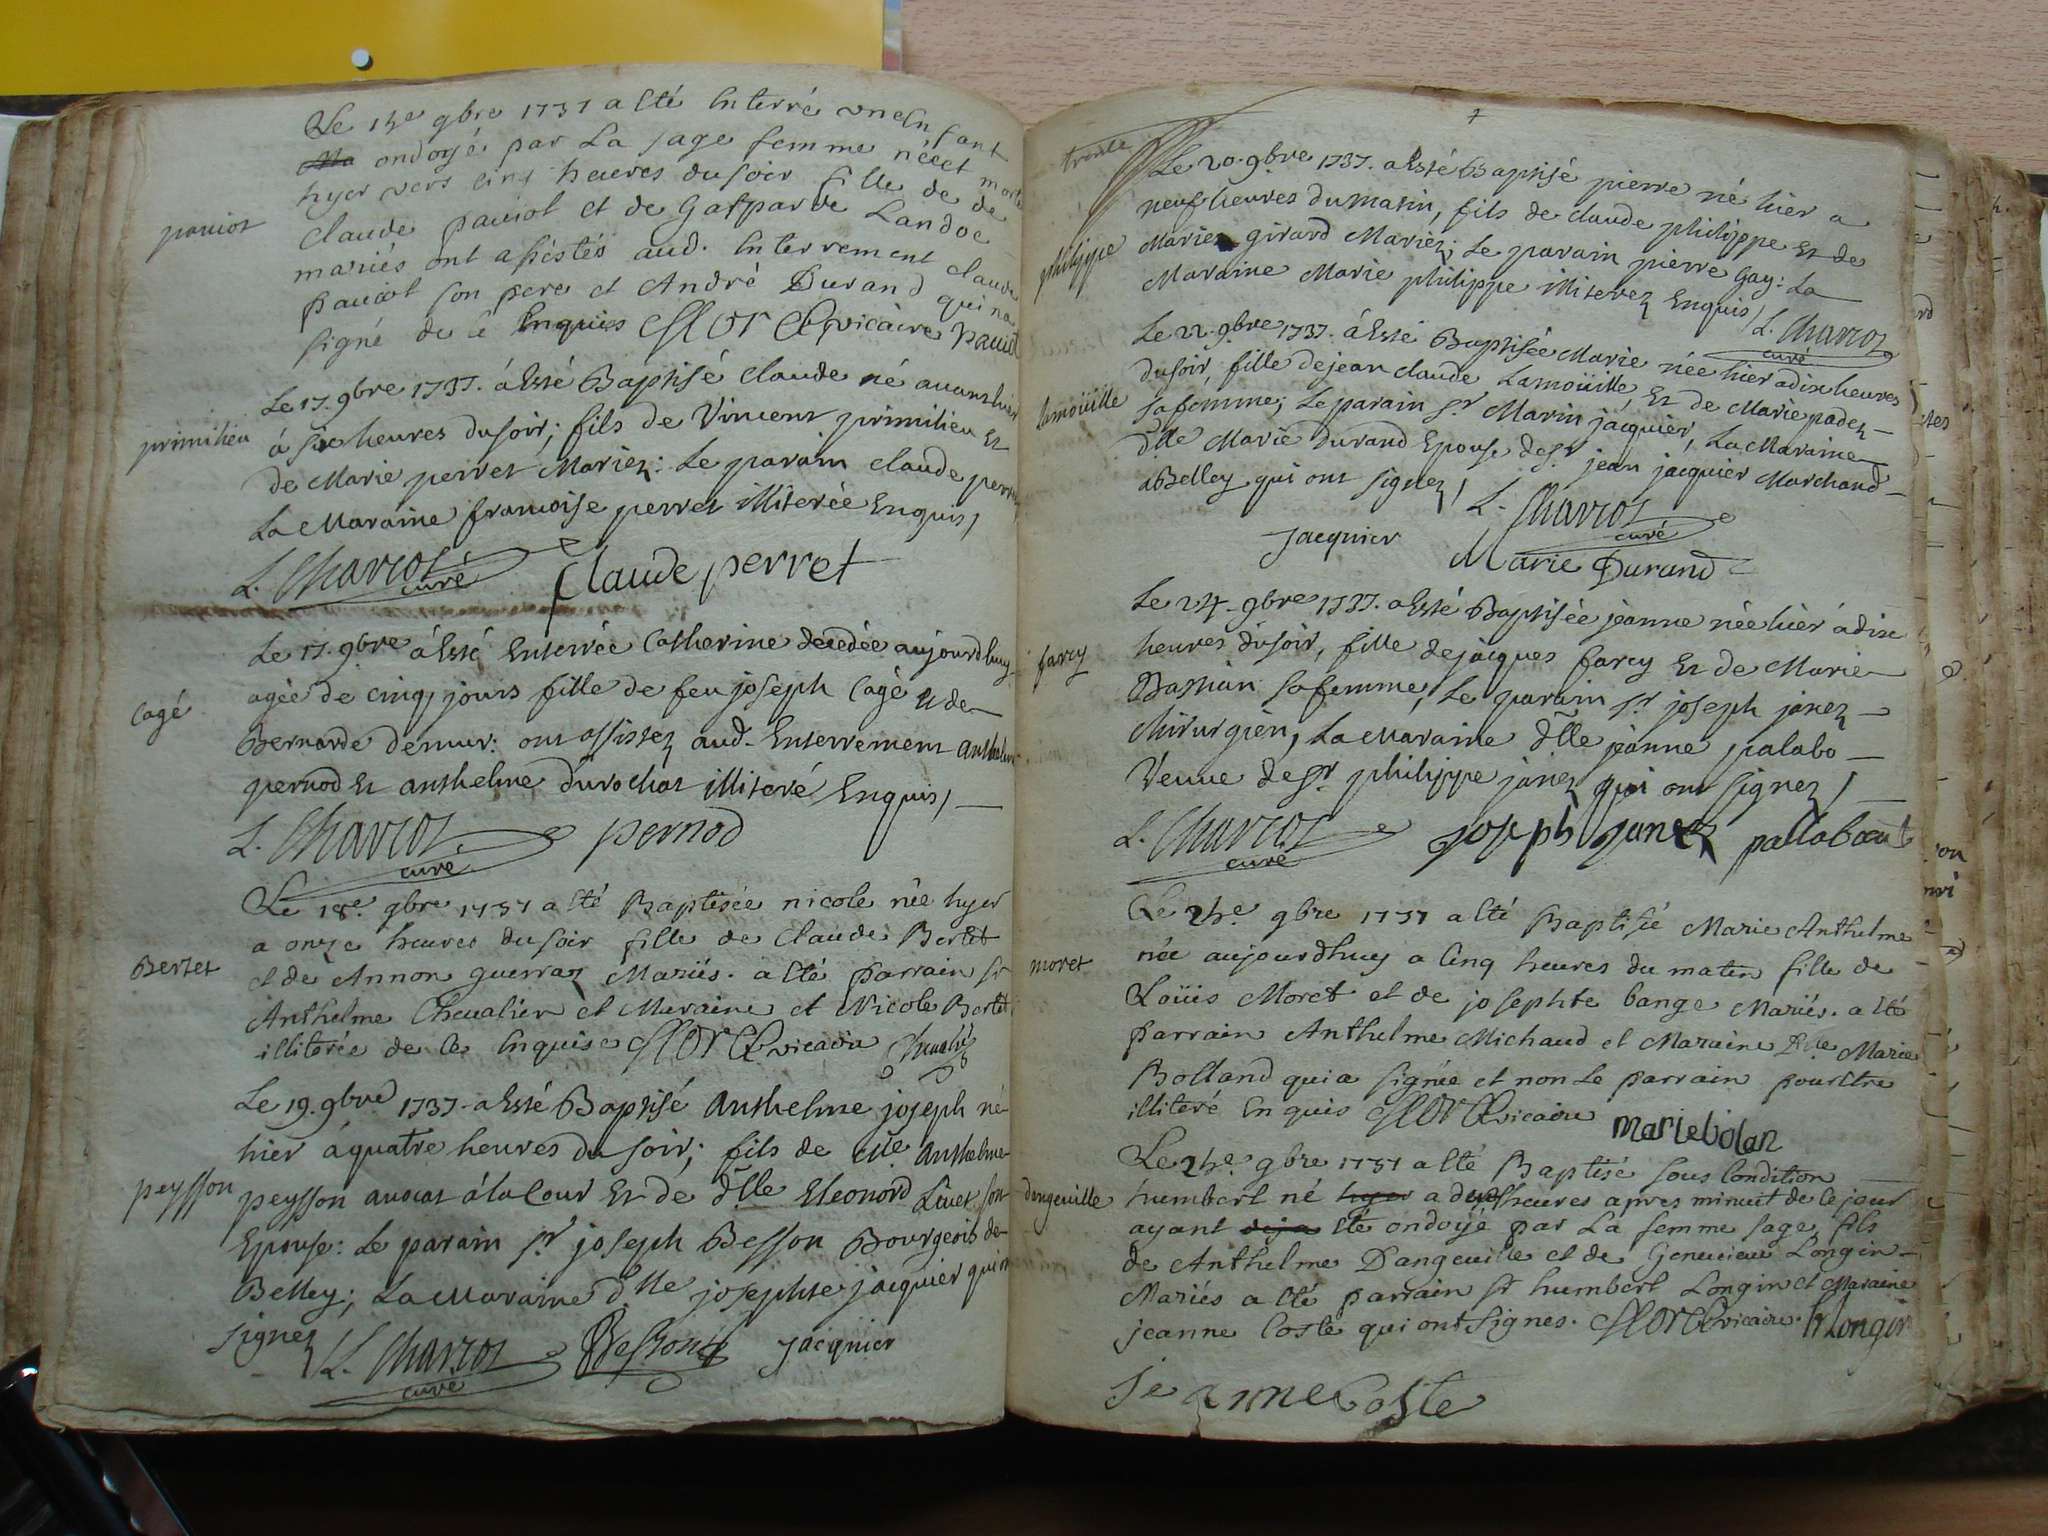 Le 15e 9bre 1737 a été Interré un enfant
ondoyé par La sage femme née et morte
hyer vers cinq heures du soir fille de
Claude pauiot et de Gasparde Landoe
pauiot
mariés ont assistés aud. Interrement claude
pauiot son pere et André Durand qui na
signé de ce Enquis vicaire pauiot
Le 17. 9bre 1737. á Esté Baptisé Claude né auant hier
á six heures du soir; fils de Vincent primilieu Et
primilieu
de Marie perret Mariez: Le parain claude perret
La Maraine francoise perret illiterée Enquis/
L. Charcot curé
Claude perret
Le 17. 9bre á Esté Enterrée Catherine decedée aujourdhuy
agée de cinq jours fille de feu joseph Cagé et de
Cagé
Bernarde demur: ont assistez aud. Enterrement Anthelme
pernod Et anthelme durochat illiteré Enquis/
L. Charcot curé
pernod
Le 18e 9bre 1737 a été Baptisée nicole née hyer
a onze heures du soir fille de Claude Bertet
Bertet
et de Annon guerraz Mariés. a été parrain sr
Anthelme Cheualier et Maraine et Nicole Bertet
illiterée de ce Enquise vicaire Chevalier
Le 19. 9bre 1737. a Esté Baptisé Anthelme joseph né
hier á quatre heures du soir; fils de Anthelme
peysson
peysson auocat á la Cour Et de dlle Eleonord Liuet son
Epouse: Le parain sr joseph Besson Bourgeois de
Belley; La Maraine dlle josephte jacquier qui ont
signez
L. Charcot curé
Besson
jacquier
trente
Le 20. 9bre 1737. a Esté Baptisé pierre né hier a
neuf heures du matin, fils de claude philippe Et de
philippe
Marie girard Mariez; Le parain pierre Gay: La
Maraine Marie philippe illiterez Enquis/
L. Charcot curé
Le 22. 9bre 1737. á Esté Baptisée Marie née hier a dix heures
du soir, fille de jean claude Lamoüille, Et de Marie padez
lamoüille
sa femme; Le parain sr Marin jacquier, La Maraine
dlle Marie durand Epouse de sr jean jacquier Marchand
a Belley qui ont signez/
L. Charcot curé
jacquier
Marie Durand
Le 24. 9bre 1737. a Esté Baptisée jeanne née hier á dix
heures du soir, fille de jacques farcy Et de Marie
farcy
Bastian sa femme, Le parain sr joseph janez
chirurgien, La Maraine dlle jeanne palabo
Veuue de sr philippe janez qui ont signez/
L. Charcot curé
joseph janez
pallabout
Le 25e 9bre 1737 a été Baptisé Marie Anthelme
née aujourdhuy a cinq heures du matin fille de
moret
Loüis Moret et de josephte bange Mariés. a été
parrain Anthelme Michaud et Maraine Dlle Marie
Bolland qui a signée et non Le parrain pour etre
illiteré Enquis vicaire
marie bolan
Le 25e 9bre 1737 a été Baptisé sous Condition
dangeuille
humbert né hyer a deux heures apres minuit de ce jour
ayant deja été ondoyé par La femme sage fils
de Anthelme Dangeuille et de Genevieue Longin
Mariés a été parrain sr humbert Longin et Maraine
jeanne Coste qui ont signes. vicaire h longin
jeanne Coste